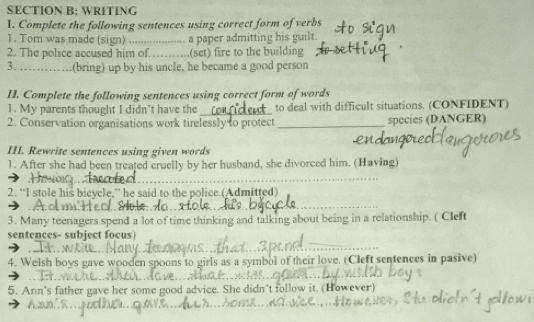 SECTION B: WRITING
I. Complete the following sentences using correct form of verbs
1. Tom was made (sign) .................. a paper admitting his guilt. to sign
2. The police accused him of............(set) fire to the building to setting.
3. ...............(bring) up by his uncle, he became a good person
II. Complete the following sentences using correct form of words
1. My parents thought I didn't have the confident to deal with difficult situations. (CONFIDENT)
2. Conservation organisations work tirelessly to protect ____________________ species (DANGER)
endangered
III. Rewrite sentences using given words
1. After she had been treated cruelly by her husband, she divorced him. (Having)
→ Having treated
2. "I stole his bicycle," he said to the police.(Admitted)
→ Admitted stole to stole his bicycle
3. Many teenagers spend a lot of time thinking and talking about being in a relationship. ( Cleft
sentences- subject focus)
→ It were Many teenagers that spend
4. Welsh boys gave wooden spoons to girls as a symbol of their love. (Cleft sentences in pasive)
→ It were their love that were by welsh boys
5. Ann's father gave her some good advice. She didn't follow it. (However)
→ Ann's gave her some advice. However, She didn't